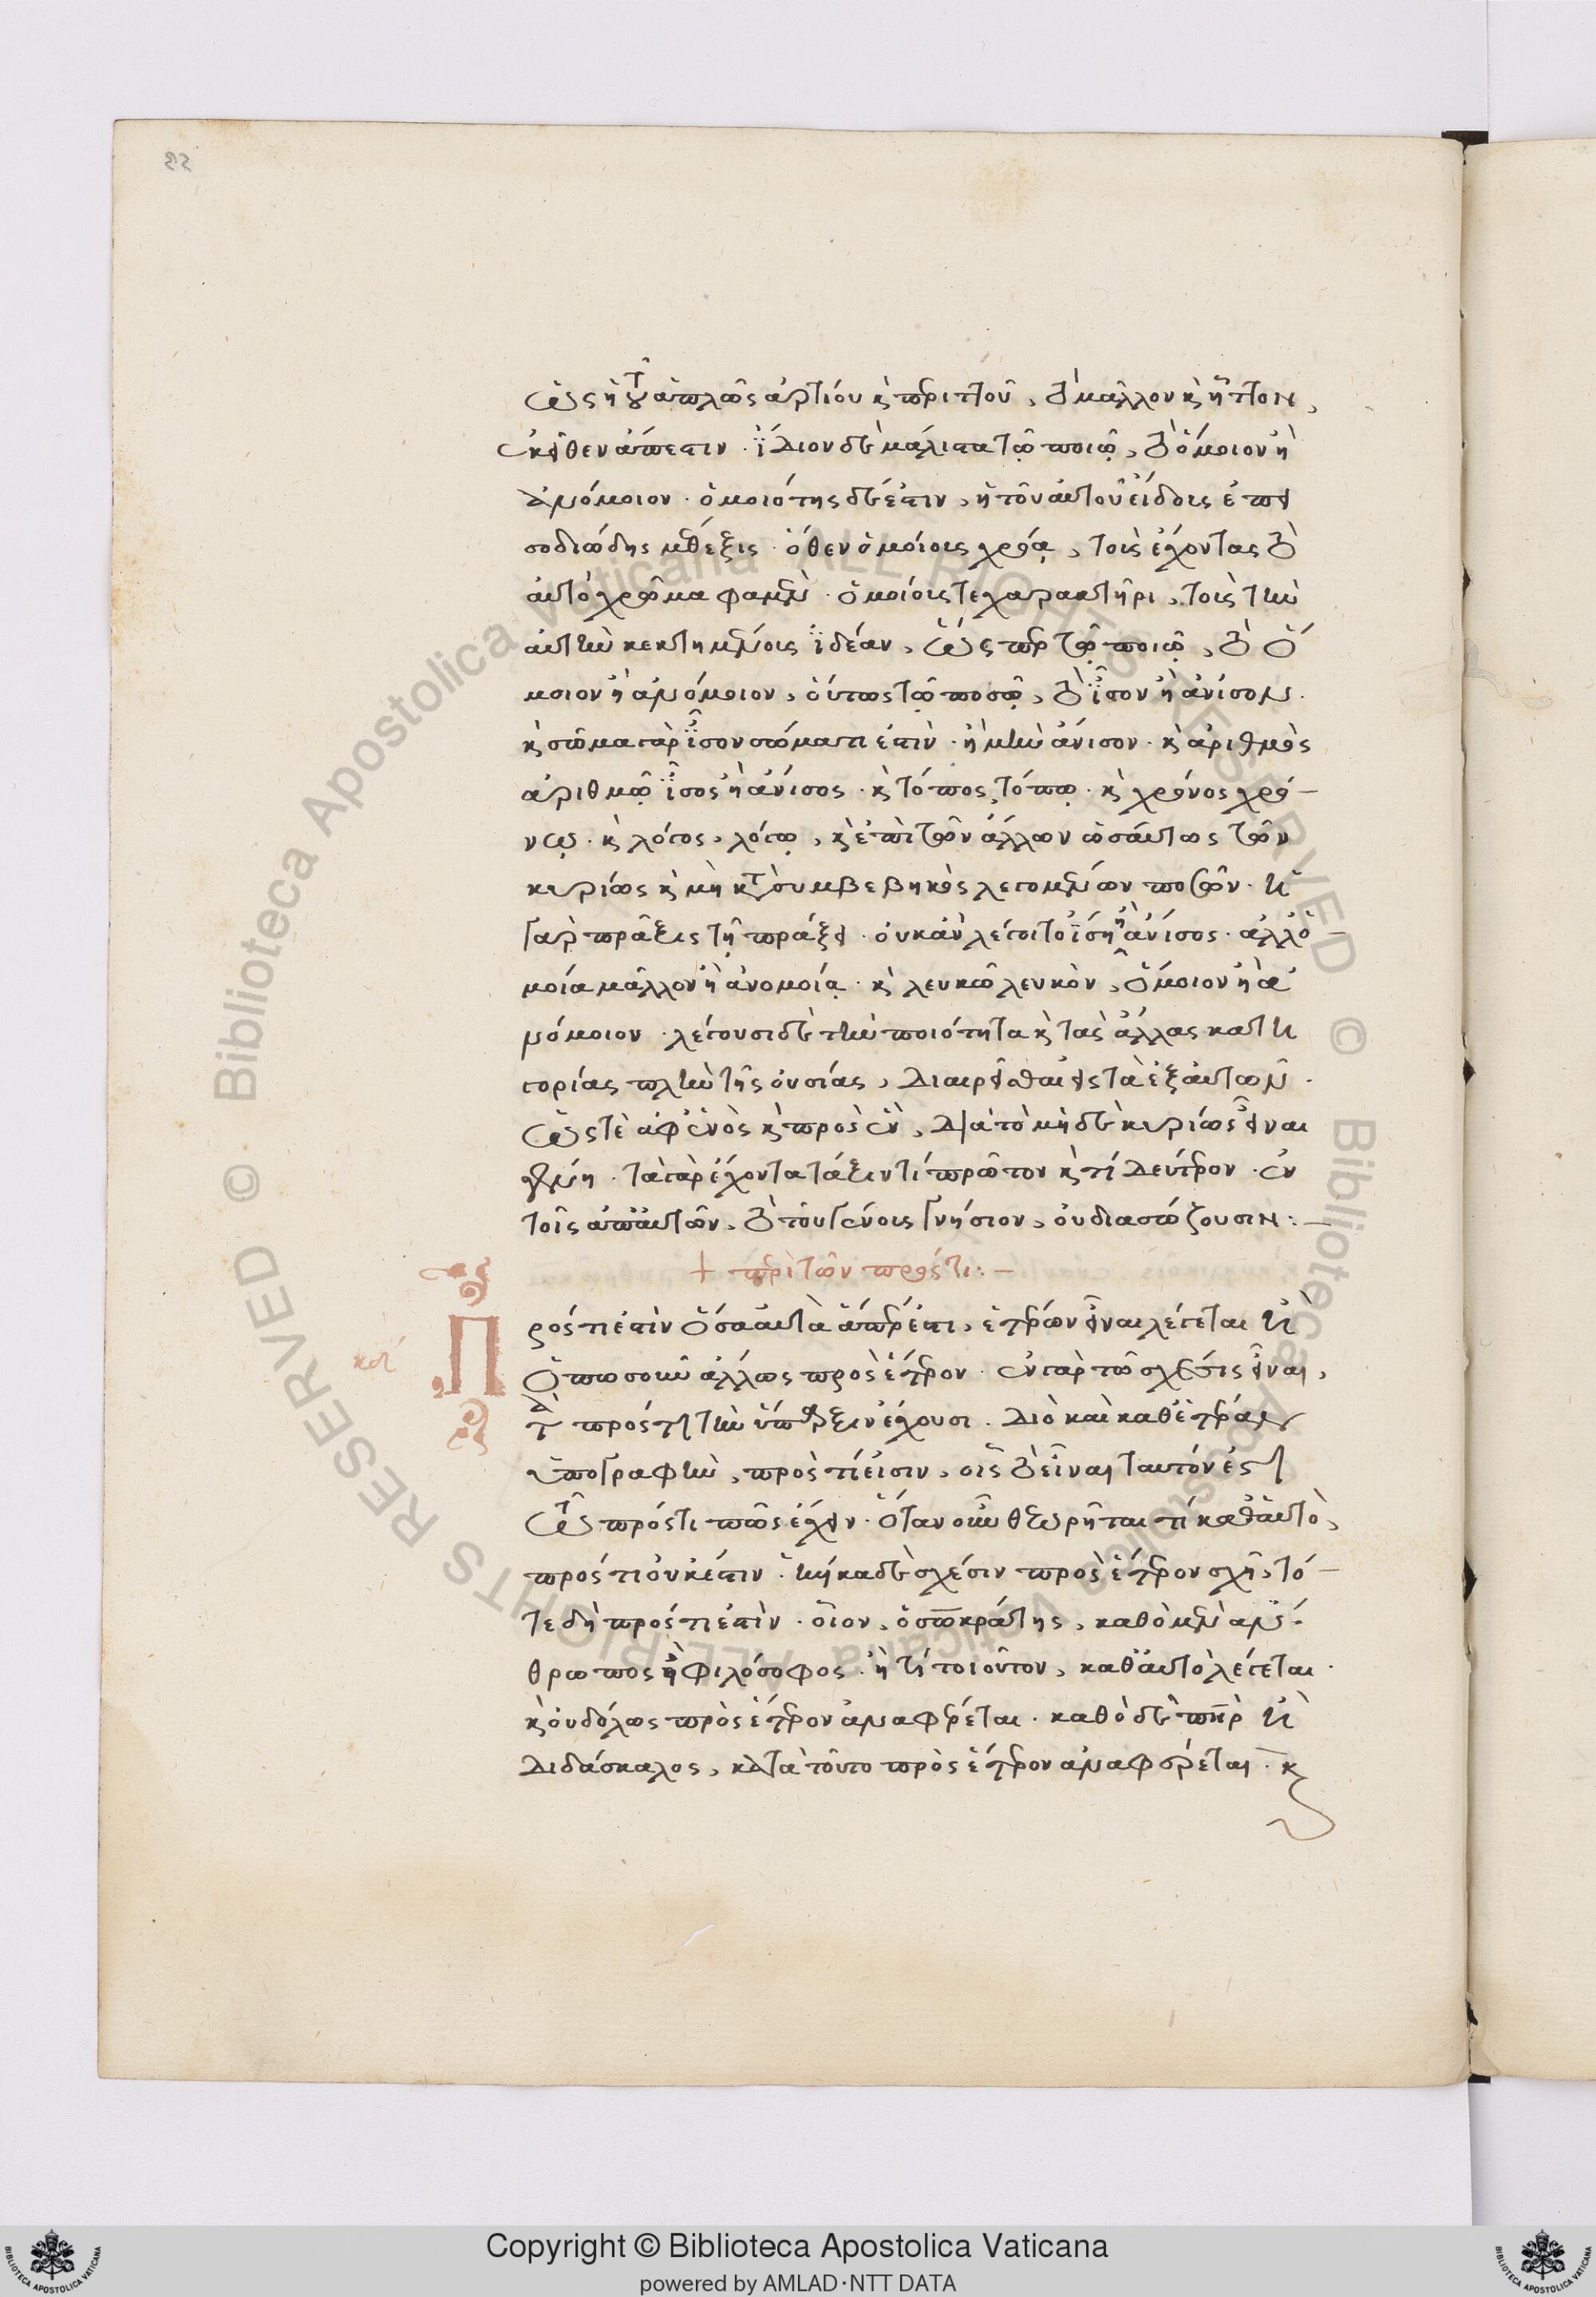 ὡς ἡ τοῦ ἁπλῶς ἀρτίου κ περιττοῦ, τὸ μᾶλλον κ ἧττον,
ἐκεῖθεν ἄπεστιν. ἴδιον δὲ μάλιστα τῶ ποιῶ, τὸ ὅμοιον ἢ
ἀνόμοιον. ὁμοιότης δέ ἐστιν, ἡ τοῦ αὐτοῦ εἴδους ἐπει
σοδιώδης μέθεξις. ὅθεν ὁμοίους χρόα, τοὺς ἔχοντας τὸ
αὐτὸ χρῶμα φαμὲν. ὁμοίους τε χαρακτῆρι, τοὺς τὴν
αὐτὴν κεκτημένους ἰδέαν, ὥσπερ τῶ ποιῶ, τὸ ὅ
μοιον ἢ ἀνόμοιον, οὕτως τῶ ποσῶ, τὸ ἶσον ἢ ἄνισον.
κ σῶμα γὰρ ἶσον σώματι ἐστὶν. ἢ μὴν ἄνισον. κ ἀριθμὸς
ἀριθμῶ ἶσος ἢ ἄνισος. κ τόπος τόπω. κ χρόνος χρό
νω. κ λόγος, λόγω, κ ἐπὶ τῶν ἄλλων ὡσαύτως τῶν
κυρίως κ μὴ κατὰ συμβεβηκὸς λεγομένων ποσῶν. ἡ
γὰρ πρᾶξις τῆ πράξει. οὐκ ἂν λέγοιτο ἴση ἢ ἄνισος. ἀλλ' ὁ
μοία μᾶλλον ἢ ἀνομοία. κ λευκῶ λευκὸν, ὅμοιον ἢ ἀ
νόμοιον. λέγουσι δὲ τὴν ποιότητα κ τὰς ἄλλας κατη
γορίας πλὴν τῆς οὐσίας, διαιρεῖσθαι εἰς τὰ ἐξ αὐτῶν.
ὥς τε ἀφ' ἑνὸς κ πρὸς ἓν, διὰ τὸ μὴ δὲ κυρίως εἶναι
γένη. τὰ γὰρ ἔχοντα τάξιν τί πρῶτον κ τί δεύτερον. ἐν
τοῖς ἀπ' αὐτῶν, τὸ τοῦ γένους γνήσιον, οὐ διασώζουσιν:—
+ περὶ τῶν πρός τι:—
Πρός τι ἐστὶν ὅσα αὐτὰ ἅπερ ἐστι, ἑτέρων εἶναι λέγεται ἢ
ὁπωσοῦν ἄλλως πρὸς ἕτερον. ἐν γὰρ τῶ σχέσις εἶναι,
τὰ πρός τι τὴν ὕπαρξιν ἔχουσι. διὸ καὶ καθ' ἑτέραν
ὑπογραφὴν, πρὸς τί εἰσιν, οἷς τὸ εἶναι ταυτόν ἐστι
τῶ πρός τι πῶς ἔχειν. ὅταν οὖν θεωρῆται τί καθ' αὑτὸ,
πρός τι οὐκ ἔστιν. ἡνίκα δὲ σχέσιν πρὸς ἕτερον σχῆ, τό
τε δὴ πρός τι ἐστὶν. οἷον, ὁ σωκράτης, καθὸ μὲν ἄν
θρωπος ἢ φιλόσοφος. ἢ τί τοιοῦτον, καθ' αὑτὸ λέγεται.
κ οὐδόλως πρὸς ἕτερον ἀναφέρεται. καθὸ δὲ πηρ ἢ
διδάσκαλος, κατὰ τοῦτο πρὸς ἕτερον ἀναφέρεται. κ
Copyright © Biblioteca Apostolica Vaticana
powered by AMLAD·NTT DATA